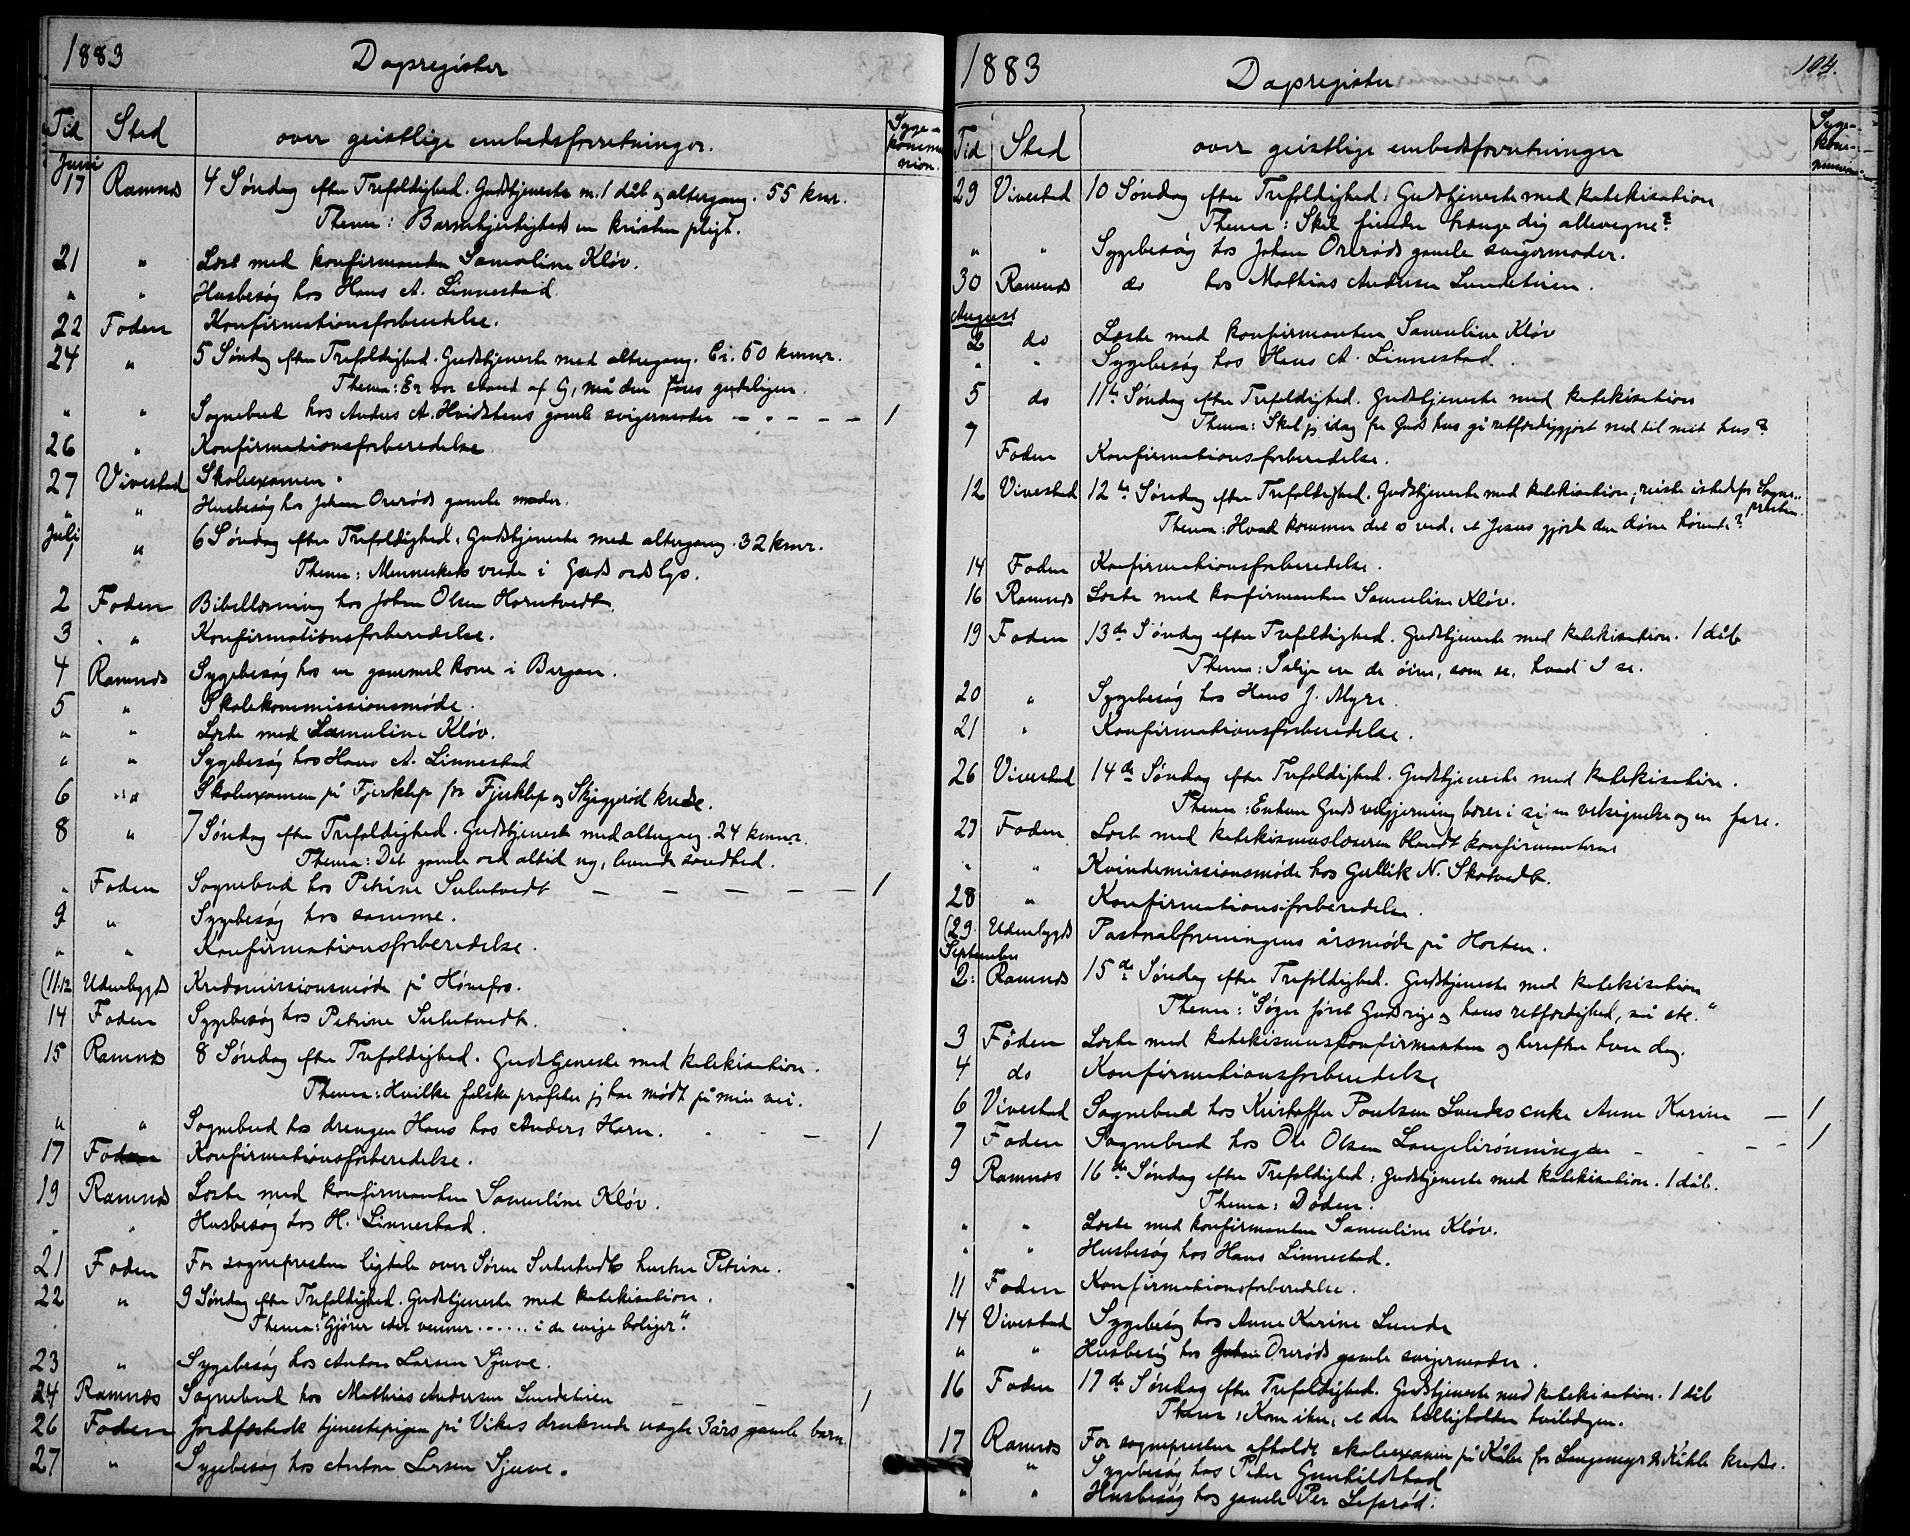 1883 Dagregister
Tid Sted over geistlige embedsforretninger. Sygekommunion.
Juni
17 Ramnæs 4 Søndag efter Trefoldighed. Gudstjeneste m. 1 dåb og altergang. 55 kmr.
Thema: Barmhjertighed en kristen pligt.
21 " Læst med konfirmanten Samuline Kløv.
" " Husbesøg hos Hans A. Linnestad
22 Foden Konfirmationsforberedelse.
24 " 5 Søndag efter Trefoldighed. Gudstjeneste med altergang. Ca. 60 kmmr.
Thema: Er vor stand af G, må den føres gudeligen.
" " Sognebud hos Anders A. Hvidstens gamle svigermoder - - - - - 1
26 " Konfirmationsforberedelse
27 Vivestad Skoleexamen.
" " Husbesøg hos Johan Orerøds gamle moder.
Juli
1 " 6 Søndag efter Trefoldighed. Gudstjeneste med altergang. 32 kmr.
Thema: Menneskets vrede i Guds ords lys.
2 Foden Bibellæsning hos Johan Olsen Horntvedt.
3 " Konfirmationsforberedelse.
4 Ramnæs Sygebesøg hos en gammel kone i Bergan.
5 " Skolekommissionsmøde.
" " Læste med Samuline Kløv.
" " Sygebesøg hos Hans A. Linnestad
6 " Skoleexamen på Fjerklep for Fjerklep og Skjeggerød kreds.
8 " 7 Søndag efter Trefoldighed. Gudstjeneste med altergang. 24 kmmr.
Thema: Det gamle ord altid ny, levende sandhed.
" Foden Sognebud hos Petrine Sulutvedt - - - - - 1
9 " Sygebesøg hos samme.
" " Konfirmationsforberedelse.
(11-12 Udenbygds Kredsmissionsmøde på Hønefos.
14 Foden Sygebesøg hos Petrine Sulutvedt.
15 Ramnæs 8 Søndag efter Trefoldighed. Gudstjeneste med katekisation.
Thema: Hvilke falske profeter jeg har mødt på min vei.
" " Sognebud hos drengen Hans hos Anders Horn. - - - 1
17 Foden Konfirmationsforberedelse.
19 Ramnæs Læste med konfirmanten Samuline Kløv.
" " Husbesøg hos H. Linnestad.
21 Foden For sognepresten ligtale over Søren Sulutvedts hustru Petrine.
22 " 9 Søndag efter Trefoldighed. Gudstjeneste med katekisation.
Thema: "Gjører eder venner...... i de evige boliger".
23 " Sygebesøg hos Anton Larsen Sjuve.
24 Ramnæs Sognebud hos Mathias Andersen Lundeteien - - 1
26 Foden Jordfæstede tjenestepigen på Vikes druknede uægte 3 års gamle barn.
27 " Sygebesøg hos Anton Larsen Sjuve.
1883 Dagregister 104.
Tid Sted over geistlige embedsforretninger Sygekommunion
29 Vivestad 10 Søndag efter Trefoldighed. Gudstjeneste med katekisation
Thema: Skal fienden trænge dig allevegne?
" " Sygebesøg hos Johan Orerøds gamle svigermoder.
30 Ramnæs do hos Mathias Andersen Lundeteien.
August
2 do Læste med konfirmanten Samuline Kløv
" " Sygebesøg hos Hans A. Linnestad
5 do 11te Søndag efter Trefoldighed. Gudstjeneste med katekisation
Thema: Skal jeg idag fra Guds hus gå retfærdiggjort ned til mit hus?
7 Foden Konfirmationsforberedelse.
12 Vivestad 12te Søndag efter Trefoldighed. Gudstjeneste med katekisation; reiste istedetfor Sognepresten
Thema: Hvad kommer det os ved, at Jesus gjorde den døve hørende?
14 Foden Konfirmationsforberedelse.
16 Ramnæs Læste med konfirmanten Samuline Kløv.
19 Foden 13de Søndag efter Trefoldighed. Gudstjeneste med katekisation. 1 dåb
Thema: Salige er de øine, som se, hvad I se.
20 " Sygebesøg hos Hans J. Myre
21 " Konfirmationsforberedelse.
26 Vivestad 14de Søndag efter Trefoldighed. Gudstjeneste med katekisation.
Thema: Enhver Guds velgjerning bærer i sig en velsignelse og en fare.
27 Foden Læst med katekismuslæseren blandt konfirmanterne
" " Kvindemissionsmøde hos Gullik N. Skatvedt.
28 " Konfirmationsforberedelse.
(29 Udenbygds Pastoralforeningens årsmøde på Horten.
September
2. Ramnæs 15de Søndag efter Trefoldighed. Gudstjeneste med katekisation
Thema: "Søger først Guds rige og hans retfærdighed, så etc."
3 Foden Læste med katekismuskonfirmanten og herefter hver dag.
4 do Konfirmationsforberedelse
6 Vivestad Sognebud hos Kristoffer Poulsen Lundes enke Anne Karine - 1
7 Foden Sognebud hos Ole Olsen Langelirønningen - - - - 1
9 Ramnæs 16de Søndag efter Trefoldighed. Gudstjeneste med katekisation. 1 dåb.
Thema: Døden.
" " Læste med konfirmanten Samuline Kløv.
" " Husbesøg hos Hans Linnestad.
11 Foden Konfirmationsforberedelse.
14 Vivestad Sygebesøg hos Anne Karine Lunde
" " Husbesøg hos Johan Orerøds gamle svigermoder.
16 Foden 17de Søndag efter Trefoldighed. Gudstjeneste med katekisation. 1 dåb
Thema: Kom ihu, at du helligholder hviledagen.
17 Ramnæs For sognepresten afholdt skoleexamen på Kåle for Langemyr & Kihle kreds.
" Sygebesøg hos Peder Gunhildstad
" " Husbesøg hos gamle Per Lefsrød.